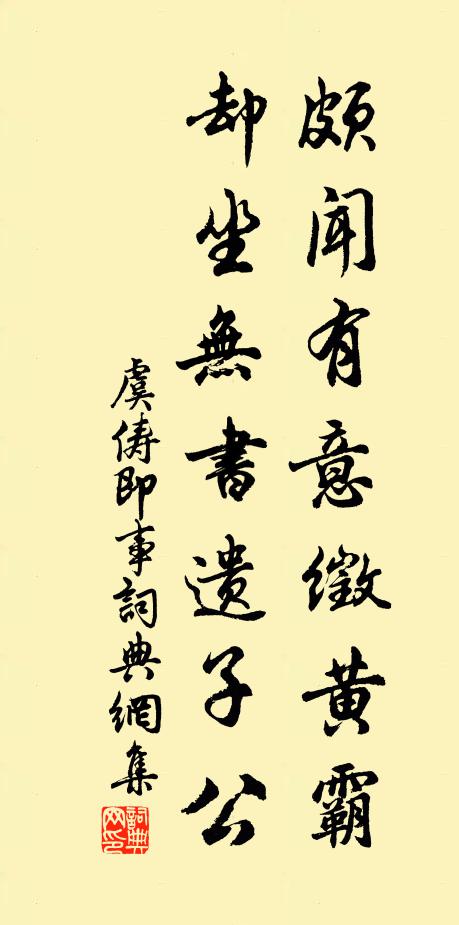 頗聞有意徵黃霸
却坐無書遺子公
虞儔即事詞典網集
詞典网印